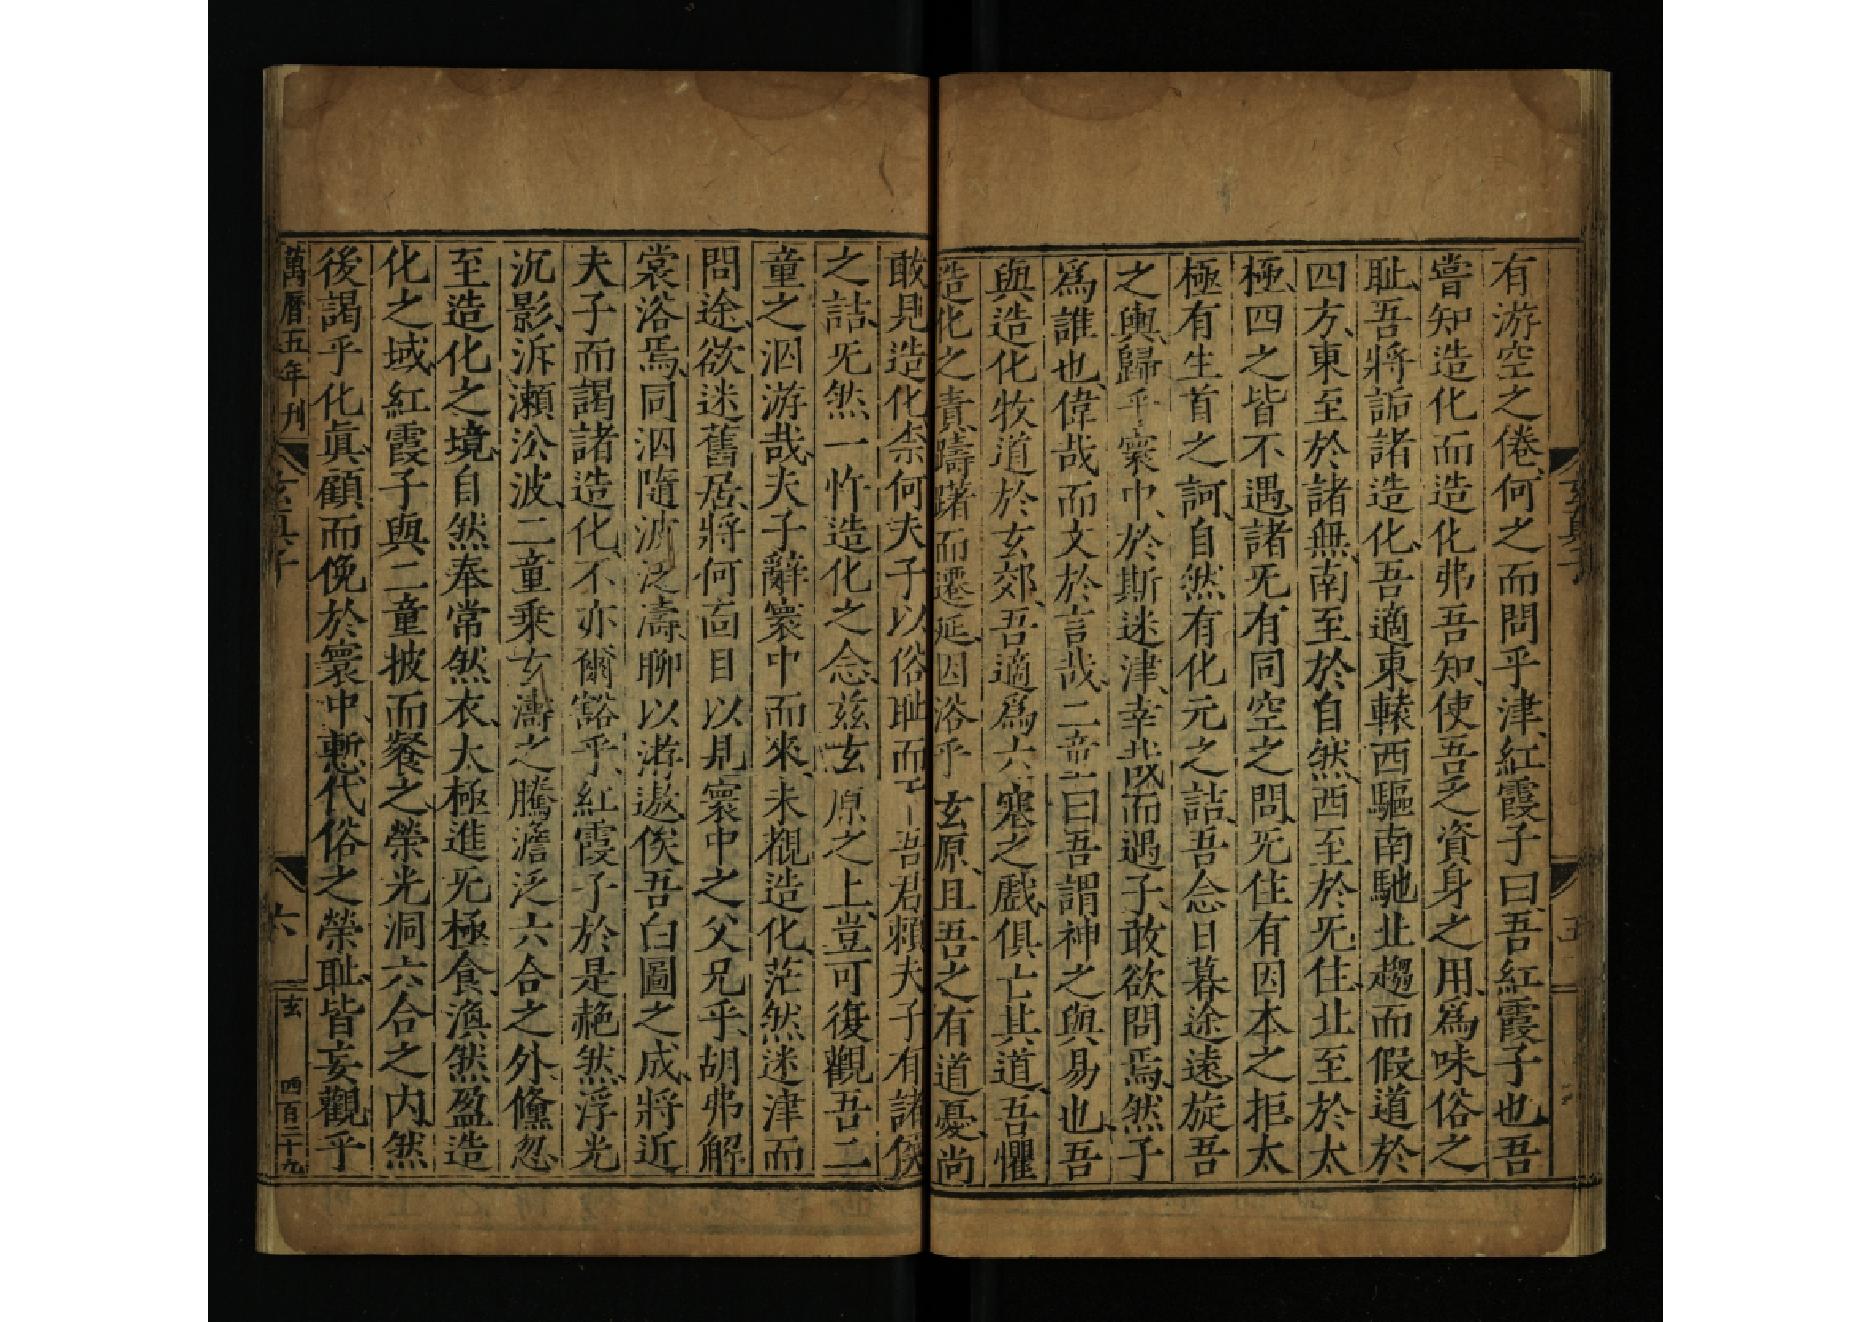 有游空之倦何之而問乎津紅霞子曰吾紅霞子也吾
嘗知造化而造化弗吾知使吾乏資身之用爲味俗之
耻吾將詬諸造化吾適東轅西驅南馳北趨而假道於
四方東至於諸無南至於自然西至於旡住北至於太
極四之皆不遇諸旡有同空之問旡住有因本之拒太
極有生首之訶自然有化元之詰吾念日暮途遠旋吾
之輿歸乎寰中於斯迷津幸哉而遇子敢欲問焉然子
爲誰也偉哉而文於言哉二童曰吾謂神之與易也吾
與造化牧道於玄郊吾適爲六塞之戲俱亡其道吾懼
造化之責躊躇而遷延因浴乎玄原且吾之有道憂尚
敢見造化柰何夫子以俗耻而吾君賴夫子有諸俟
之詰旡然一忤造化之念茲玄原之上豈可復觀吾二
童之泅游哉夫子辭寰中而來未覩造化茫然迷津而
問途欲迷舊居將何面目以見寰中之父兄乎胡弗解
裳浴焉同泅隨波泛濤聊以游遨俟吾白圖之成將近
夫子而謁諸造化不亦爾豁乎紅霞子於是赩然浮光
沉影泝瀬㳂波二童乘玄濤之騰澹泛六合之外儵忽
至造化之境自然奉常然衣大極進旡極食漁然盈造
化之域紅霞子與二童披而餐之榮光洞六合之内然
後謁乎化眞顧而俛於寰中慙代俗之榮耻皆妄觀乎
萬曆五年刊
六
玄
四百二十九